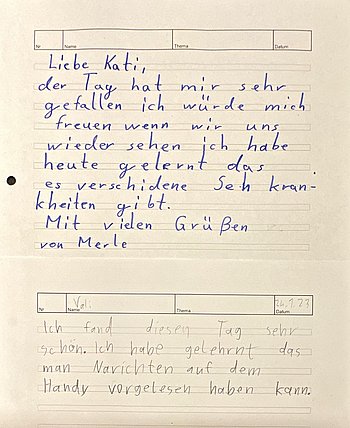 Nr Name Thema Datum
Liebe Kati,
der Tag hat mir sehr
gefallen ich würde mich
freuen wenn wir uns
wieder sehen ich habe
heute gelernt das
es verschidene Seh kran-
kheiten gibt.
Mit vielen Grüßen
von Merle
Nr Name Thema Datum
Vali 24.1.23
Ich fand diesen Tag sehr
schön. Ich habe gelehrnt das
man Narichten auf dem
Handy vorgelesen haben kann.